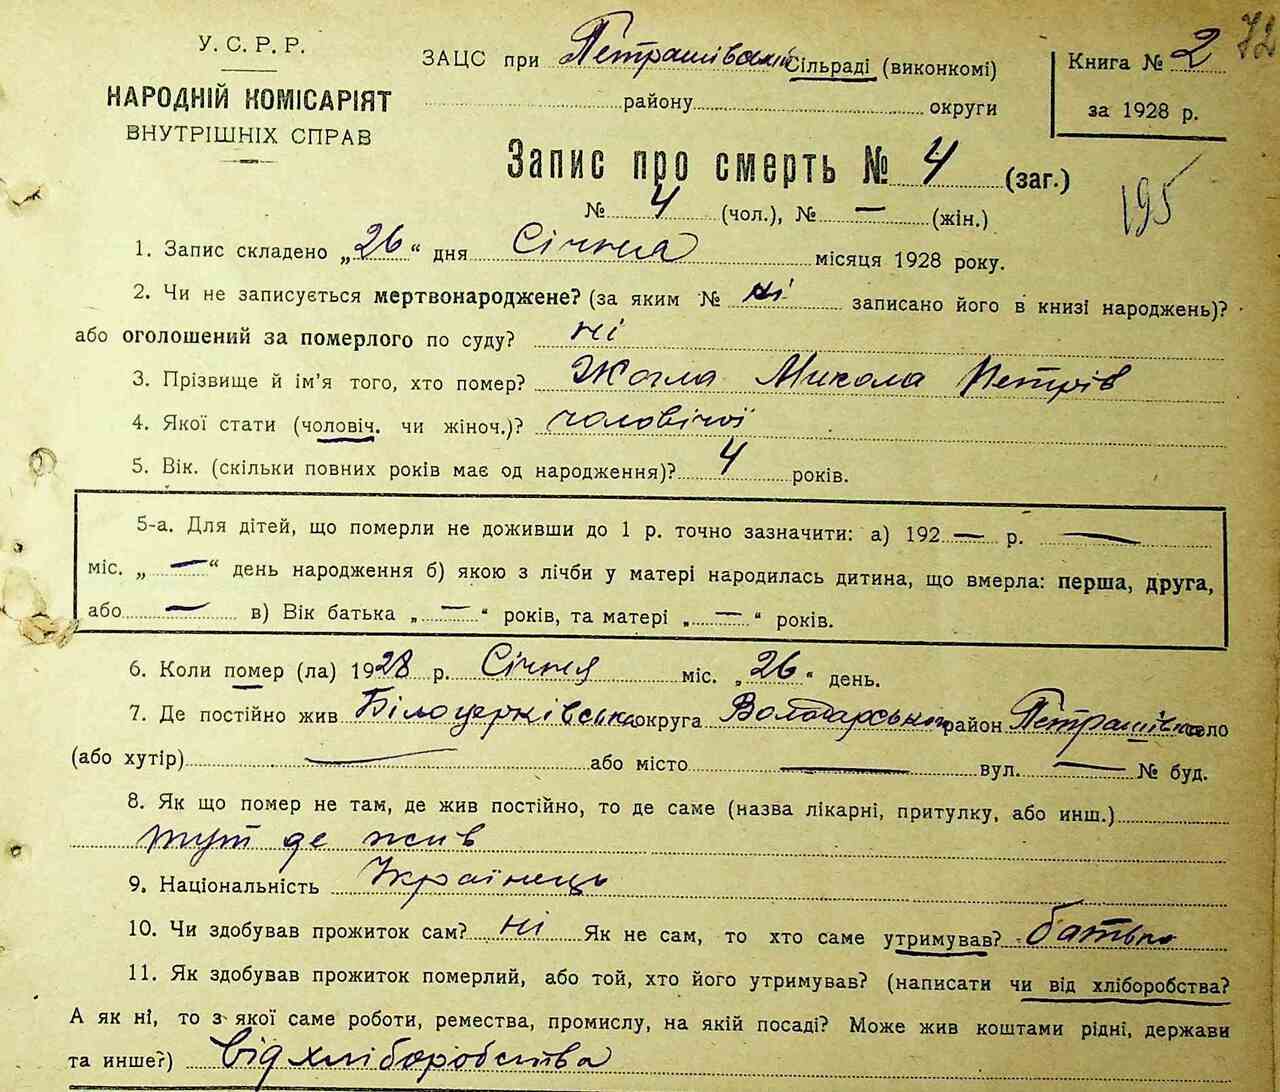 72
У. С. Р. Р.
НАРОДНІЙ КОМІСАРІЯТ
ВНУТРІШНІХ СПРАВ
ЗАЦС при Петрашівській Сільраді (виконкомі)
району округи
Книга № 2
за 1928 р.
Запис про смерть № 4 (заг.)
№ 4 (чол.), № — (жін.)
195
1. Запис складено „26“ дня Січня місяця 1928 року.
2. Чи не записується мертвонароджене? (за яким № ні записано його в книзі народжень)?
або оголошений за померлого по суду? ні
3. Прізвище й ім'я того, хто помер? Жогла Микола Петрів
4. Якої стати (чоловіч. чи жіноч.)? чоловічої
5. Вік. (скільки повних років має од народження)? 4 років.
5-а. Для дітей, що померли не доживши до 1 р. точно зазначити: а) 192 — р. —
міс. „ — “ день народження б) якою з лічби у матері народилась дитина, що вмерла: перша, друга,
або — в) Вік батька „ — “ років, та матері „ — “ років.
6. Коли помер (ла) 1928 р. Січня міс. „26“ день.
7. Де постійно жив Білоцерківська округа Володарський район Петрашівка село
(або хутір) — або місто — вул. — № буд.
8. Як що помер не там, де жив постійно, то де саме (назва лікарні, притулку, або инш.)
тут де жив
9. Національність Українець
10. Чи здобував прожиток сам? ні Як не сам, то хто саме утримував? батько
11. Як здобував прожиток померлий, або той, хто його утримував? (написати чи від хліборобства?
А як ні, то з якої саме роботи, ремества, промислу, на якій посаді? Може жив коштами рідні, держави
та инше?) від хліборобства